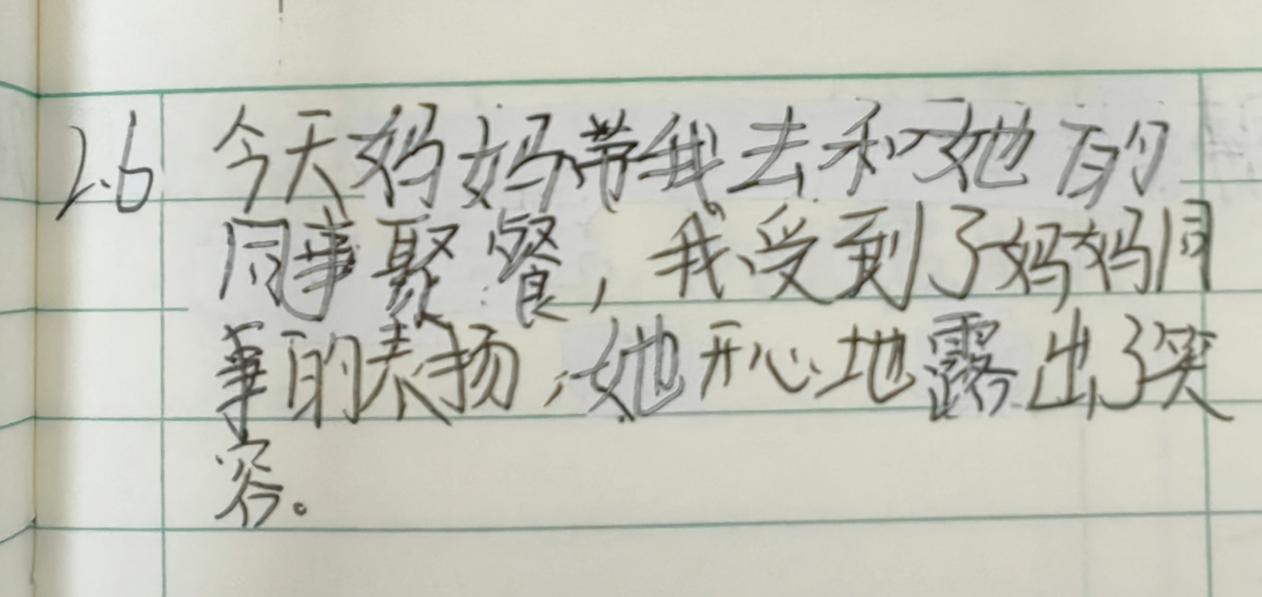 2.6 今天妈妈带我去和她的
同事聚餐，我受到了妈妈同
事的表扬，她开心地露出了笑
容。